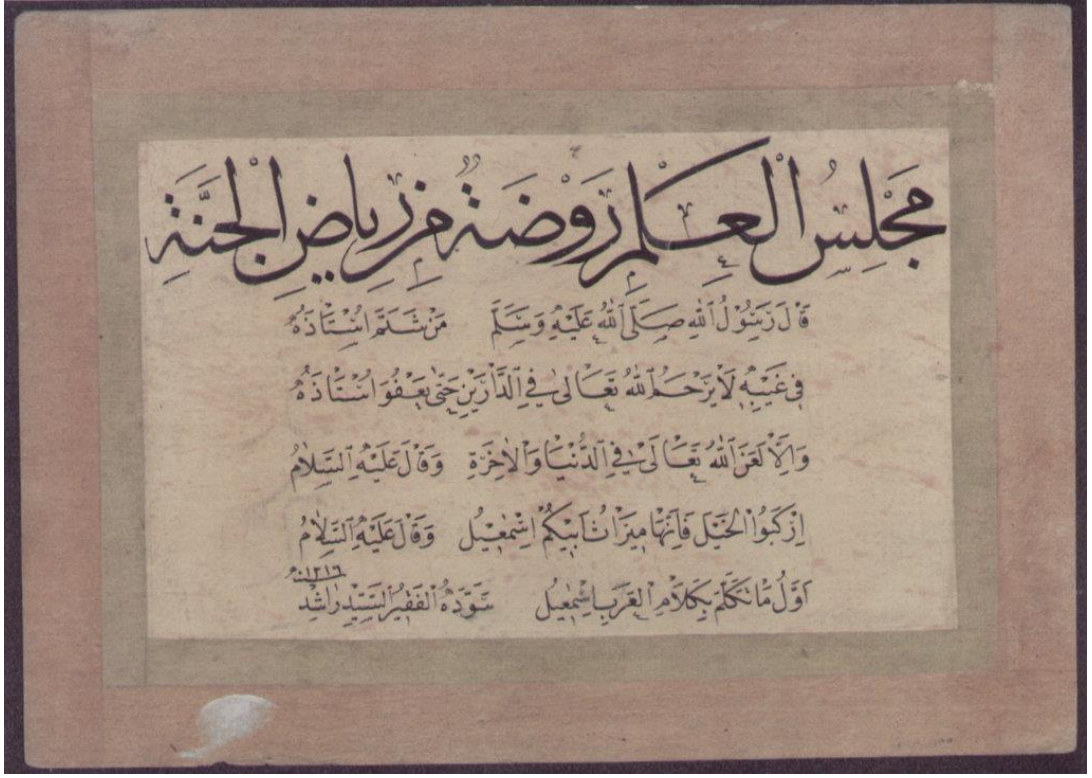 مَجْلِسُ الْعِلْمِ رَوْضَةٌ مِنْ رِيَاضِ الْجَنَّةِ
قَالَ رَسُولُ اللهِ صَلَّى اللهُ عَلَيْهِ وَسَلَّمَ مَنْ شَتَمَ اُسْتَاذَهُ
فِى غَيْبِهِ لَا يَرْحَمُ اللهُ تَعَالٰى فِى الدَّارَيْنِ حَتّٰى يَعْفُوَ اُسْتَاذُهُ
وَاِلَّا لَعَنَ اللهُ تَعَالٰى فِى الدُّنْيَا وَالْاٰخِرَةِ وَقَالَ عَلَيْهِ السَّلَامُ
اِرْكَبُوا الْخَيْلَ فَاِنَّهَا مِيرَاثُ اَبِيكُمْ اِسْمٰعِيلَ وَقَالَ عَلَيْهِ السَّلَامُ
اَوَّلُ مَا تَكَلَّمَ بِكَلَامِ الْعَرَبِ اِسْمٰعِيلُ سَوَّدَهُ الْفَقِيرُ السَّيِّدْ رَاشِدْ
سنه ١٢١٦